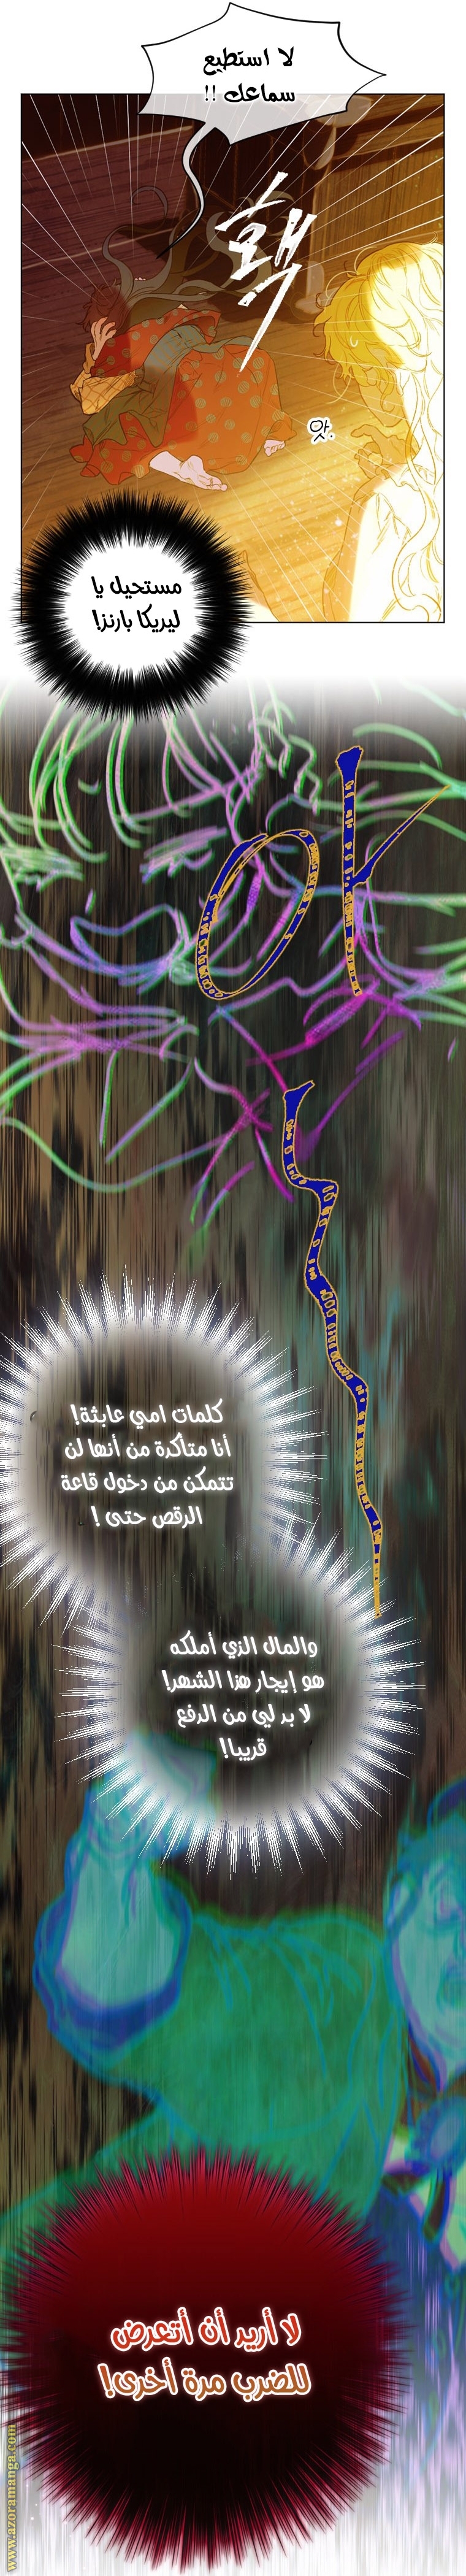 لا استطيع
سماعك !!
홱
앗.
مستحيل يا
ليريكا بارنز!
아
كلمات امي عابثة!
أنا متأكدة من أنها لن
تتمكن من دخول قاعة
الرقص حتى !
والمال الذي أملكه
هو إيجار هذا الشهر!
لا بد لي من الدفع
قريبا!
لا أريد أن أتعرض
للضرب مرة أخرى!
www.azoramanga.com